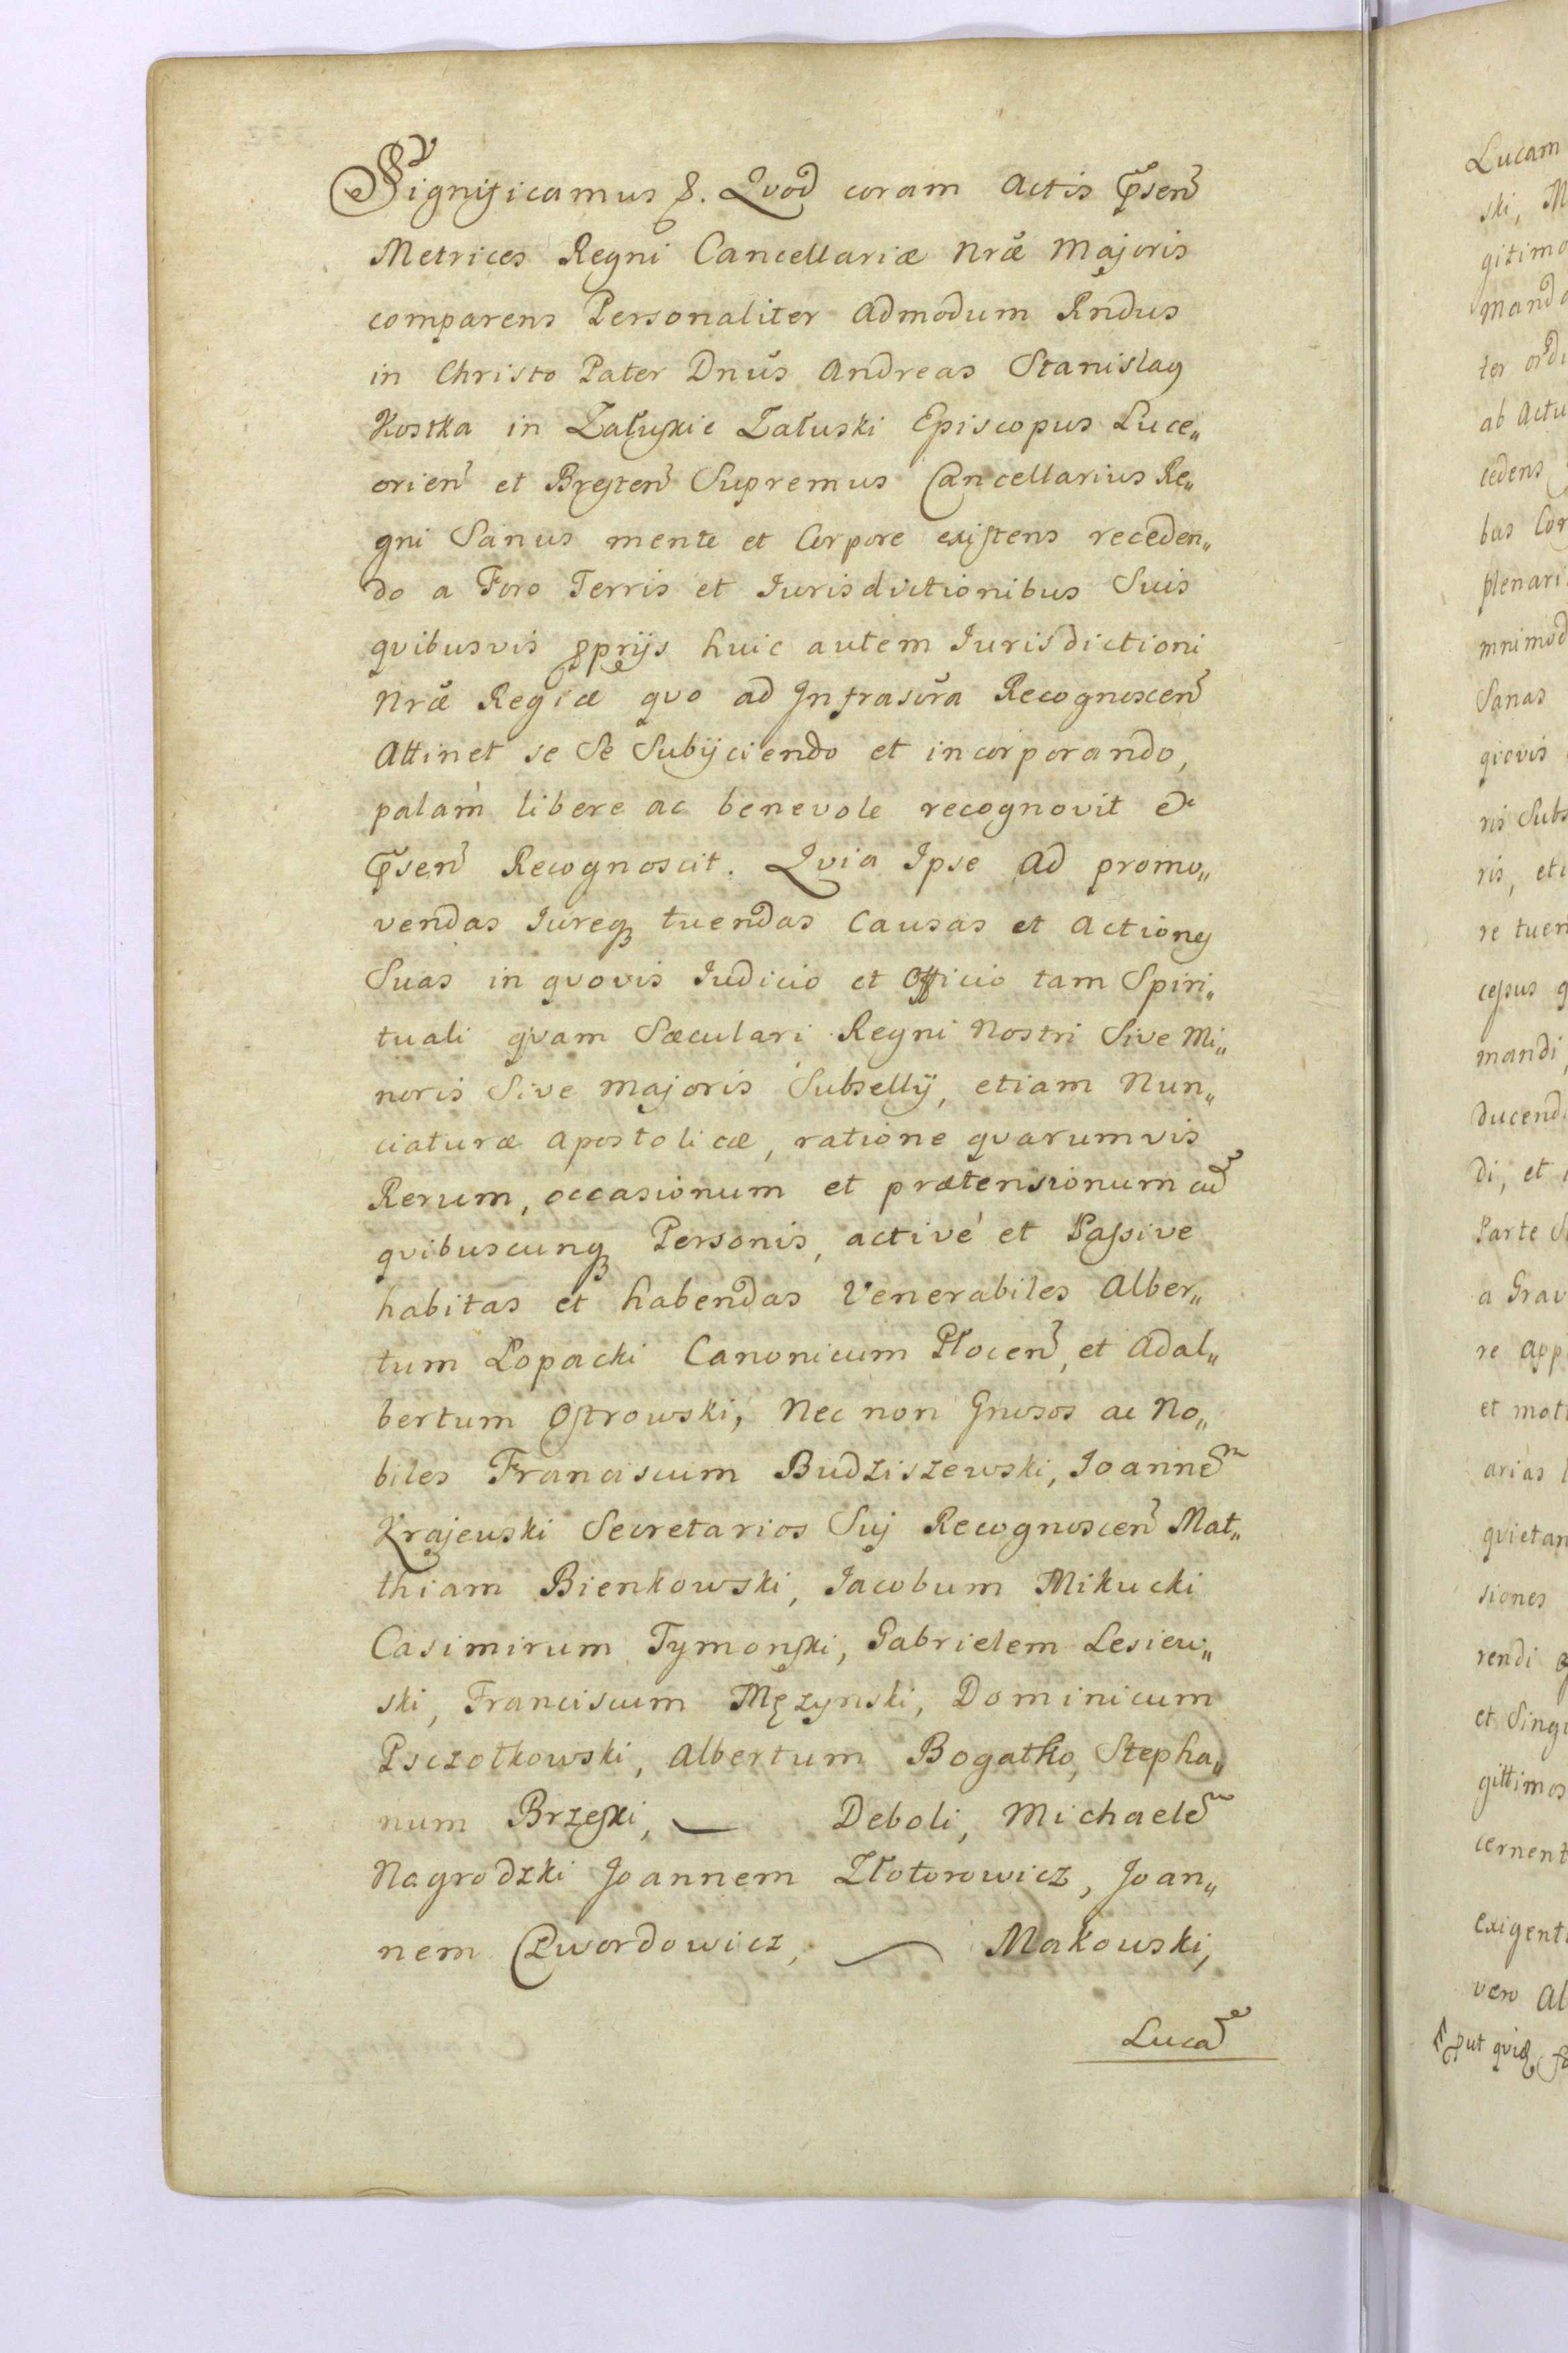 Significamus &. Qvod coram Actis Psen̄
Metrices Regni Cancellariæ Nræ Majoris
comparens Personaliter Admodum Rndus
in Christo Pater Dnus Andreas Stanislaus
Kostka in Załuskie Załuski Episcopus Luce„
orien̄ et Bresten̄ Supremus Cancellarius Re„
gni Sanus mente et Corpore existens receden„
do a Foro Terris et Iurisdictionibus Suis
qvibusvis pprijs huic autem Iurisdictioni
Nræ Regiæ qvo ad Infrascra Recognoscen̄
Attinet se Se Subijciendo et incorporando,
palam libere ac benevole recognovit et
Psen̄ Recognoscit. Qvia Ipse Ad promo„
vendas Iureq tuendas Causas et Actiones
Suas in qvovis Iudicio et Officio tam Spiri„
tuali qvam Sæculari Regni Nostri Sive Mi„
noris Sive Majoris Subsellij, etiam Nun„
ciaturæ Apostolicæ, ratione qvarumvis
Rerum, occasionum et prætensionum cū
qvibuscunq Personis, activé et Passive
habitas et habendas Venerabiles Alber„
tum Łopacki Canonicum Płocen̄, et Adal„
bertum Ostrowski, Nec non Gnrosos ac No„
biles Franciscum Budziszewski, Ioannē
Krajewski Secretarios Suj Recognoscen̄ Mat„
thiam Bienkowski, Iacobum Mikucki
Casimirum Tymonski, Gabrielem Lesiew„
ski, Franciscum Mężynski, Dominicum
Psczołkowski, Albertum Bogatko, Stepha„
num Brzeski, — Deboli, Michaelē
Nagrodzki Joannem Złotorowicz, Joan„
nem Cwordowicz, — Makowski,
Lucā
Lucam
ski, M
gitimo
Manda
ter ordi
ab Actu
cedens
bus Cor
plenari
mnimod
Sanas
giovis
ris Subs
ris, eti
re tuen
cessus q
mandi,
ducend
di, et
Parte S
a Grav
re App
et moti
arias
qvietan
siones
rendi
et Singu
gittimos
cernent
exigent
vero Al